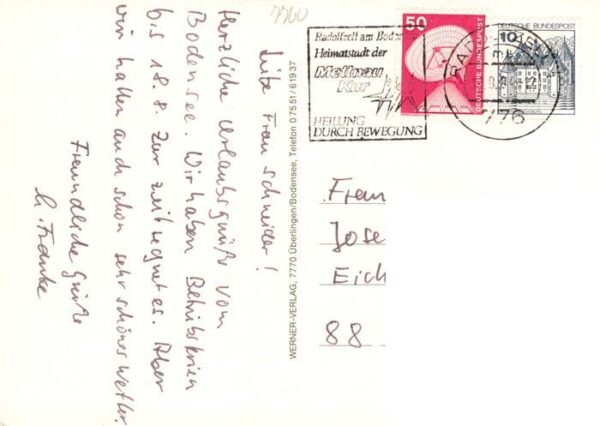 7760
Liebe Frau Schneider!
Herzliche Urlaubsgrüße vom
Bodensee. Wir haben Betriebsferien
bis 18.8. Zur Zeit regnet es. Aber
wir hatten auch schon sehr schönes Wetter.
Freundliche Grüße
G. Franke
WERNER-VERLAG, 7770 Überlingen/Bodensee, Telefon 07551/61937
Radolfzell am Bod
Heimatstadt der
Mettnau
Kur
HEILUNG
DURCH BEWEGUNG
50
DEUTSCHE BUNDESPOST
DEUTSCHE BUNDESPOST
10
RAD
776
Frau
Jose
Eich
88